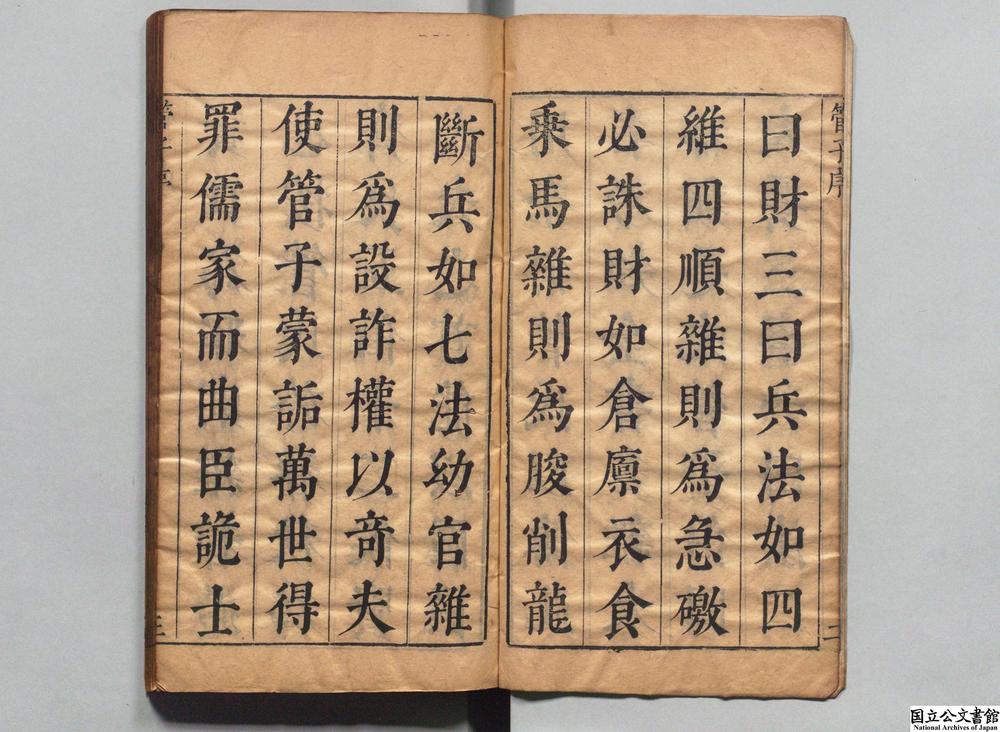 管子序
曰財三曰兵法如四
維四順雜則爲急礉
必誅財如倉廪衣食
乗馬雜則爲朘削龍
二
斷兵如七法幼官雜
則爲設詐權以竒夫
使管子蒙詬萬世得
罪儒家而曲臣詭士
三
国立公文書館
National Archives of Japan